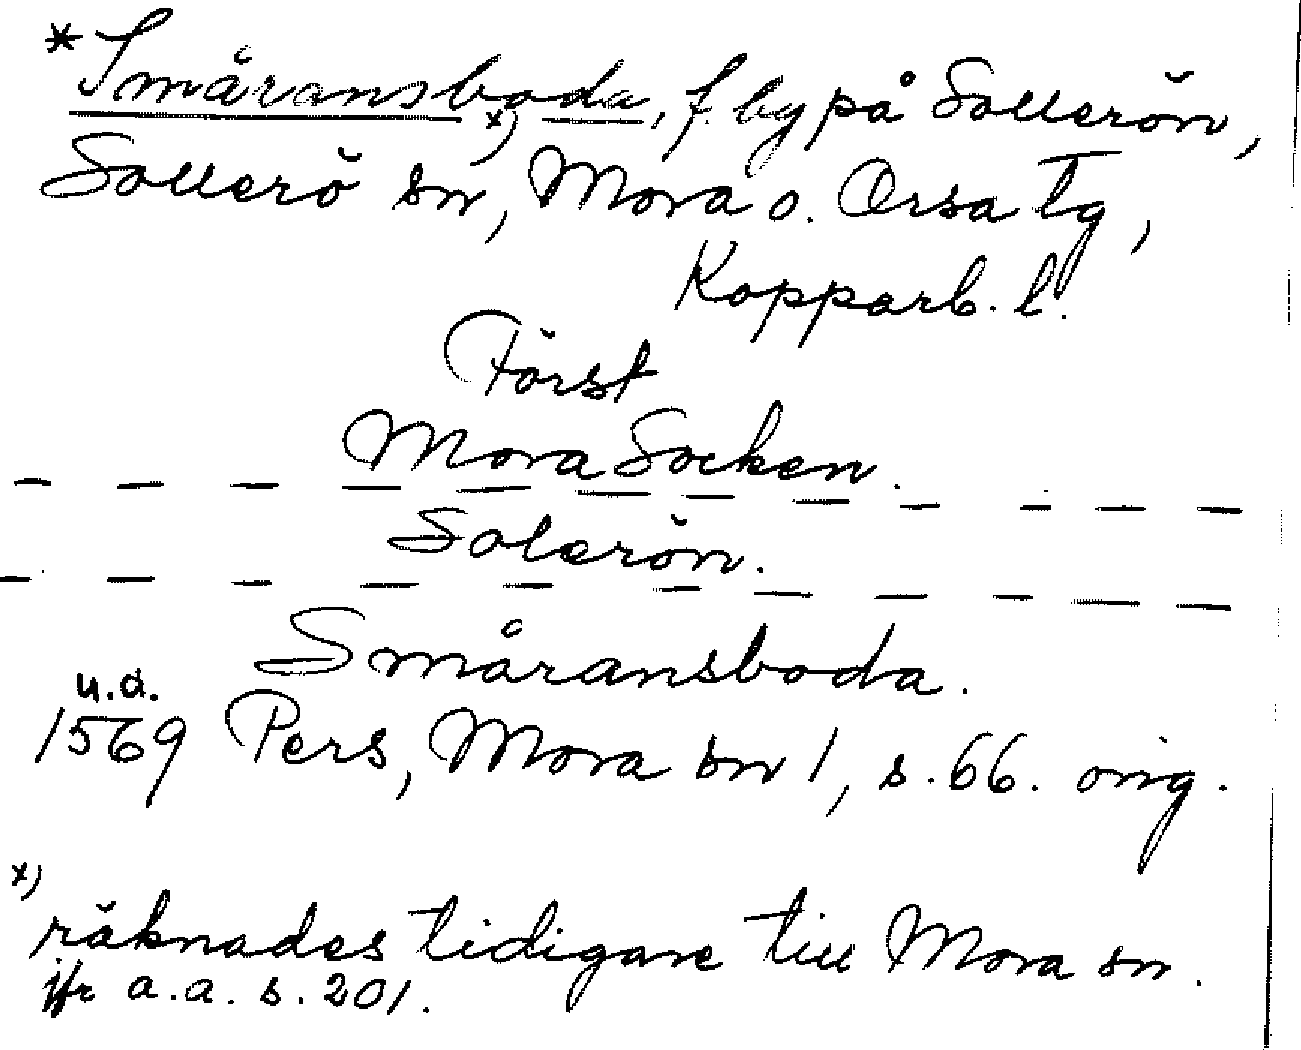 *Småransboda, f. by på Sollerön,
Sollerö sn, x) Mora o. Orsa tg,
Kopparb. l.
Först
Mora Socken.
Solerön.
Småransboda.
u.d.
1569 Pers, Mora sn 1, s. 66. orig.
x)
räknades tidigare till Mora sn.
jfr a.a. s. 201.